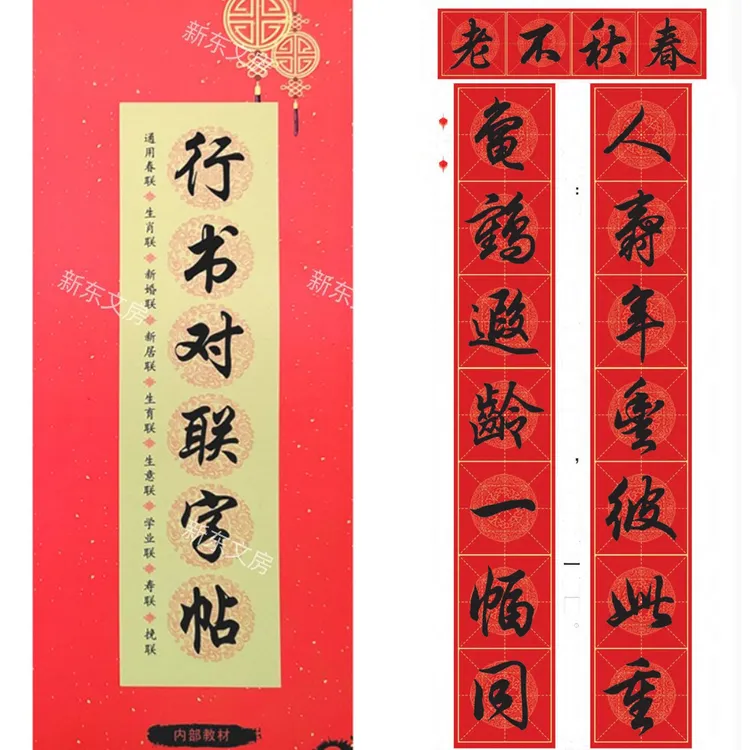 行书对联字帖
通用春联 生肖联 新婚联 新居联 生育联 生意联 学业联 寿联 挽联
内部教材
新东文房
新东文房
新东文房
新东文房
春秋不老
人壽年豐彼此重
鶴遐齡一幅同